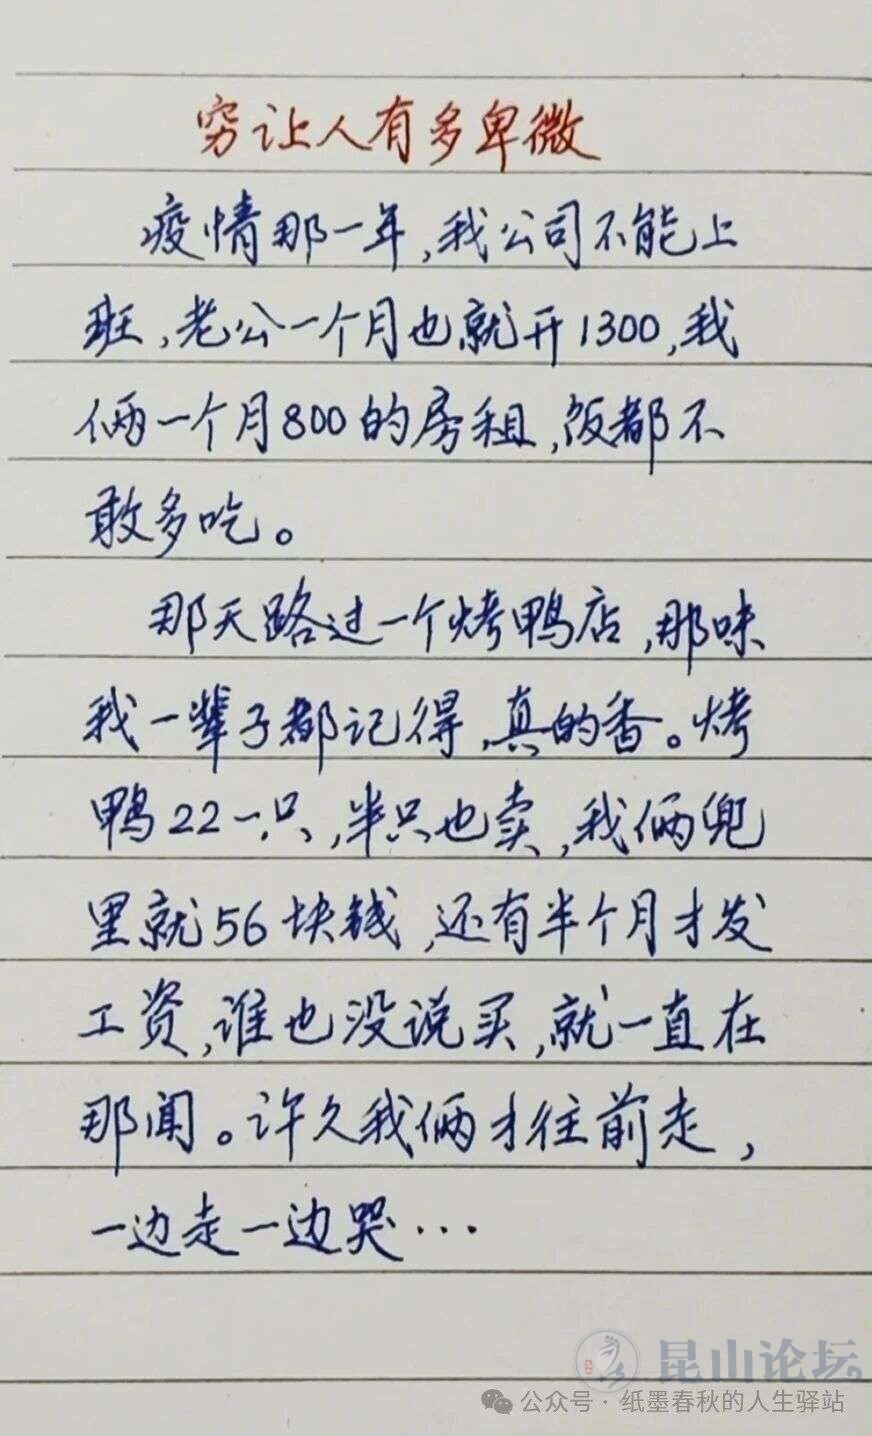 穷让人有多卑微
疫情那一年,我公司不能上
班,老公一个月也就开1300,我
俩一个月800的房租,饭都不
敢多吃。
那天路过一个烤鸭店,那味
我一辈子都记得,真的香。烤
鸭22一只,半只也卖,我俩兜
里就56块钱,还有半个月才发
工资,谁也没说买,就一直在
那闻。许久我俩才往前走,
一边走一边哭…
昆山论坛
公众号·纸墨春秋的人生驿站